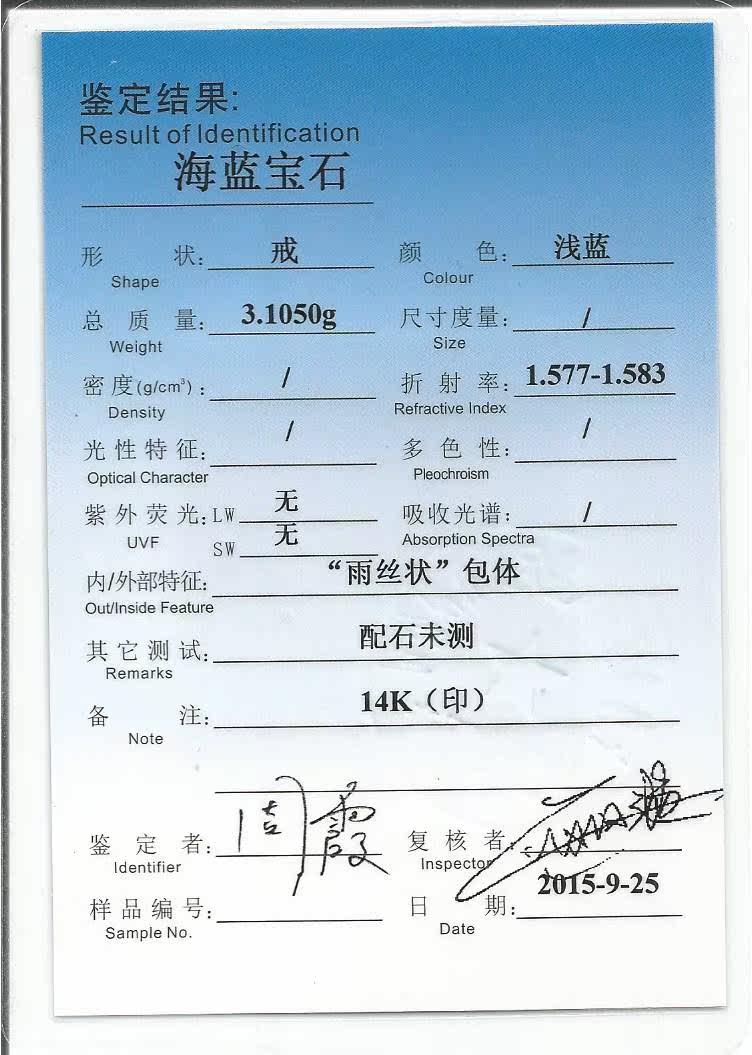 鉴定结果:
Result of Identification
海蓝宝石
形 状: 戒 颜 色: 浅蓝
Shape Colour
总 质 量: 3.1050g 尺寸度量: /
Weight Size
密 度(g/cm³): / 折 射 率: 1.577-1.583
Density Refractive Index
光 性 特 征: / 多 色 性: /
Optical Character Pleochroism
紫 外 荧 光: LW 无 吸收光谱: /
UVF SW 无 Absorption Spectra
内/外部特征: “雨丝状”包体
Out/Inside Feature
其 它 测 试: 配石未测
Remarks
备 注: 14K（印）
Note
鉴 定 者: 周霞 复 核 者:
Identifier Inspector
样 品 编 号: 日 期: 2015-9-25
Sample No. Date